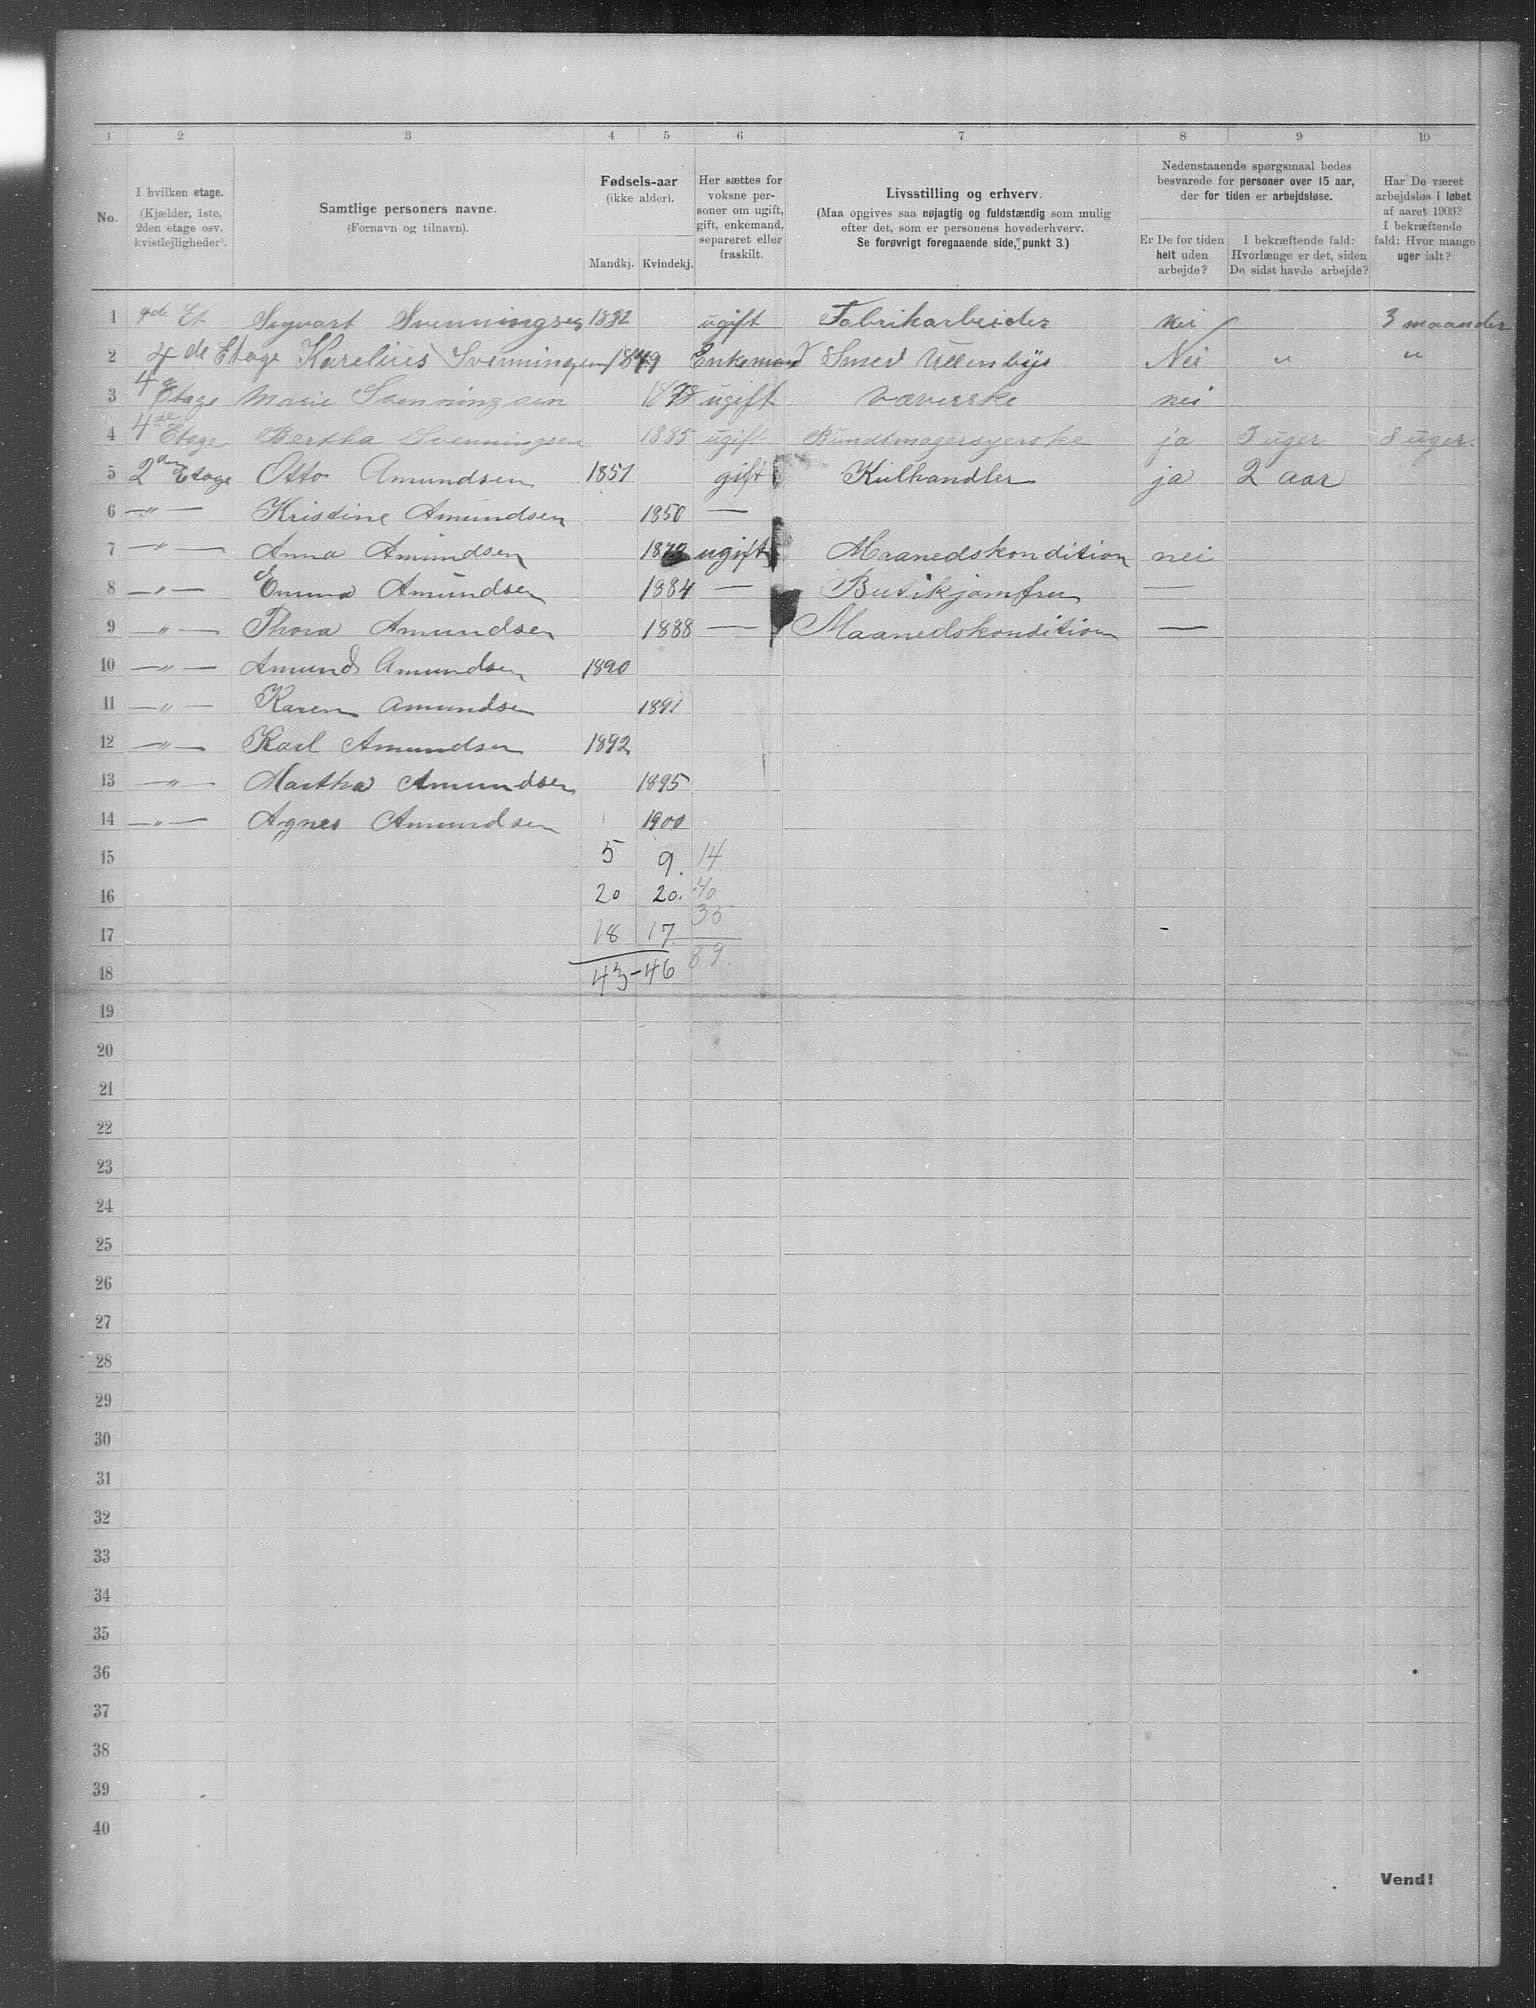 1 2 3 4 5 6 7 8 9 10
No.
I hvilken etage.
(Kjælder, 1ste, 2den etage osv. kvistlejligheder).
Samtlige personers navne.
(Fornavn og tilnavn).
Fødsels-aar
(ikke alder).
Mandkj. Kvindekj.
Her sættes for voksne personer om ugift, gift, enkemand, separeret eller fraskilt.
Livsstilling og erhverv.
(Maa opgives saa nøjagtig og fuldstændig som mulig efter det, som er personens hovederhverv.
Se forøvrigt foregaaende side, punkt 3.)
Nedenstaaende spørgsmaal bedes besvarede for personer over 15 aar, der for tiden er arbejdsløse.
Er De for tiden helt uden arbejde?
I bekræftende fald: Hvorlænge er det, siden De sidst havde arbejde?
Har De været arbejdsløs i løbet af aaret 1903? I bekræftende fald: Hvor mange uger ialt?
1 4de Et Sigvart Svenningsen 1882 ugift Fabrikarbeider nei 3 maander
2 4de Etage Karelius Svenningsen 1849 Enkemand Smed Nei " "
3 4de Etage Marie Svenningsen 1878 ugift Væverske nei
4 4de Etage Bertha Svenningsen 1885 ugift Bundtmagersyerske ja 3 uger 8 uger.
5 2den Etage Otto Amundsen 1851 gift Kulhandler ja 2 aar
6 — " — Kristine Amundsen 1850 —
7 — " — Anna Amundsen ugift Maanedskondition nei
8 — " — Emma Amundsen 1884 — Butikjomfru —
9 — " — Thora Amundsen 1888 — Maanedskondition —
10 — " — Amund Amundsen 1890
11 — " — Karen Amundsen 1891
12 — " — Karl Amundsen 1892
13 — " — Martha Amundsen 1895
14 — " — Agnes Amundsen 1900
15 5 9. 14
16 20 20. 40
17 18 17 35
18 43-46 89.
19
20
21
22
23
24
25
26
27
28
29
30
31
32
33
34
35
36
37
38
39
40
Vend!